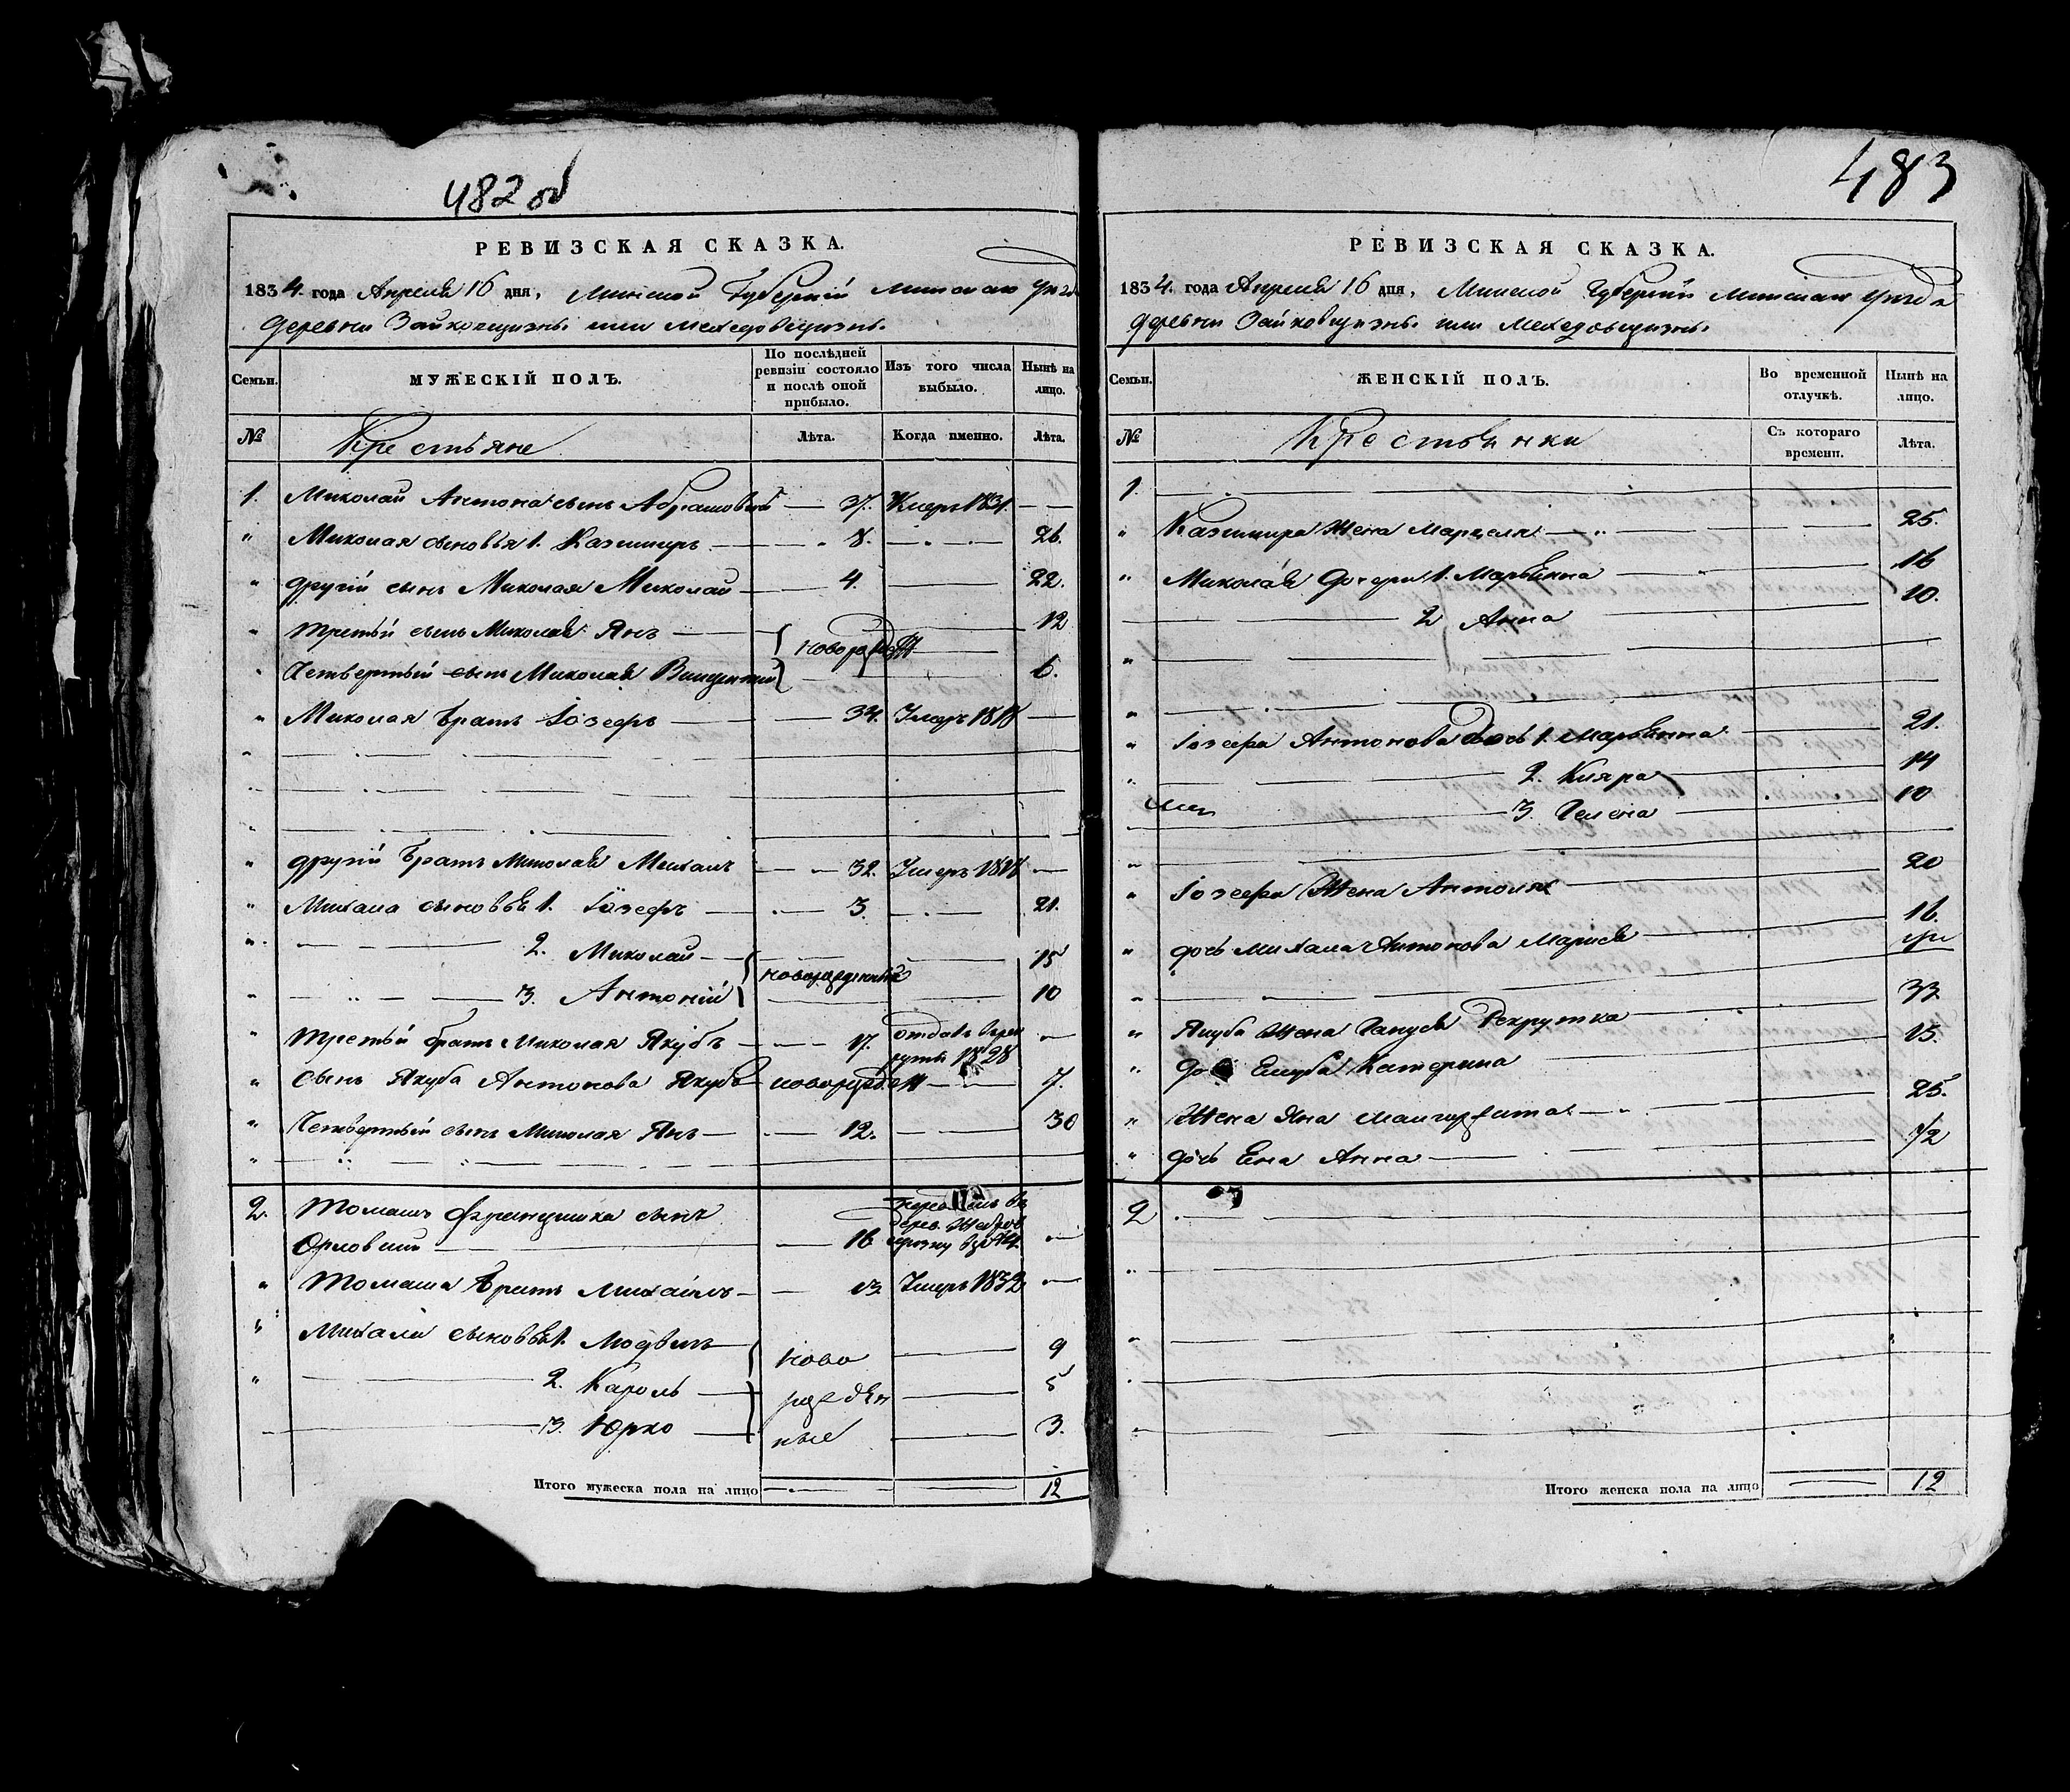 482 об
РЕВИЗСКАЯ СКАЗКА.
1834. года Апреля 16 дня, Минской Губерній Минскаго уезда
деревни Зайковщизны или Мехедовщизны.
Семьи. МУЖЕСКІЙ ПОЛЪ. По послѣдней ревизіи состояло и послѣ оной прибыло. Изъ того числа выбыло. Нынѣ на лицо.
№ Крестьяне Лѣта. Когда именно. Лѣта.
1. Миколай Антона сынъ Абрамовский — 37. Умеръ 1831. —
" Миколая сыновья 1. Казимиръ — 8. — 26.
" другій сынъ Миколая Миколай — 4. — 22.
" третій сынъ Миколая Янъ — 12
новорожден
" Четвертый сынъ Миколая Винцентий — 6.
" Миколая братъ Іозефъ — 34. Умеръ 1818 —
" другій братъ Миколая Михалъ — 32. Умеръ 1818 —
" Михала сыновья 1. Іозефъ — 3. — 21.
" — 2. Миколай — 15
новорожденные
" — 3. Антоній — 10
" третій братъ Миколая Якубъ — 17. отдавъ врек
руты 1828 —
" Сынъ Якуба Антонова Якубъ новорожден — 7.
" Четвертый сынъ Миколая Янъ — 12. — 30
2. Томашъ Францишка сынъ
Орловский — 16 —
" Томаша братъ Михаилъ — 13 Умеръ 1832 —
" Михала сыновья 1. Людвикъ — ново — 9
" — 2. Кароль — рожден — 5
" — 3. Юрко — ные — 3.
Итого мужеска пола на лицо — 12
483
РЕВИЗСКАЯ СКАЗКА.
1834. года Апреля 16 дня, Минской Губерній Минскаго уезда
деревни Зайковщизны или Мехедовщизны.
Семьи. ЖЕНСКІЙ ПОЛЪ. Во временной отлучкѣ. Нынѣ на лицо.
№ Крестьянки Съ котораго времени. Лѣта.
1.
" Казимира Жена Марцеля — 25.
" Миколая Дочери 1. Марьянна — 16
— 2 Анна — 10.
" Іозефа Антонова Дочь 1. Марьянна — 21.
" — 2. Кляра — 14
— 3. Гелена — 10
" Іозефа Жена Антоля — 20
" дочь Михала Антонова Марися — 16.
" Якуба Жена Гапуся Рекрутка — 33.
" Катерина — 13.
" Жена Яна Малгоржата — 25.
" дочь Ена Анна — 1/2
2
Итого женска пола на лицо — 12